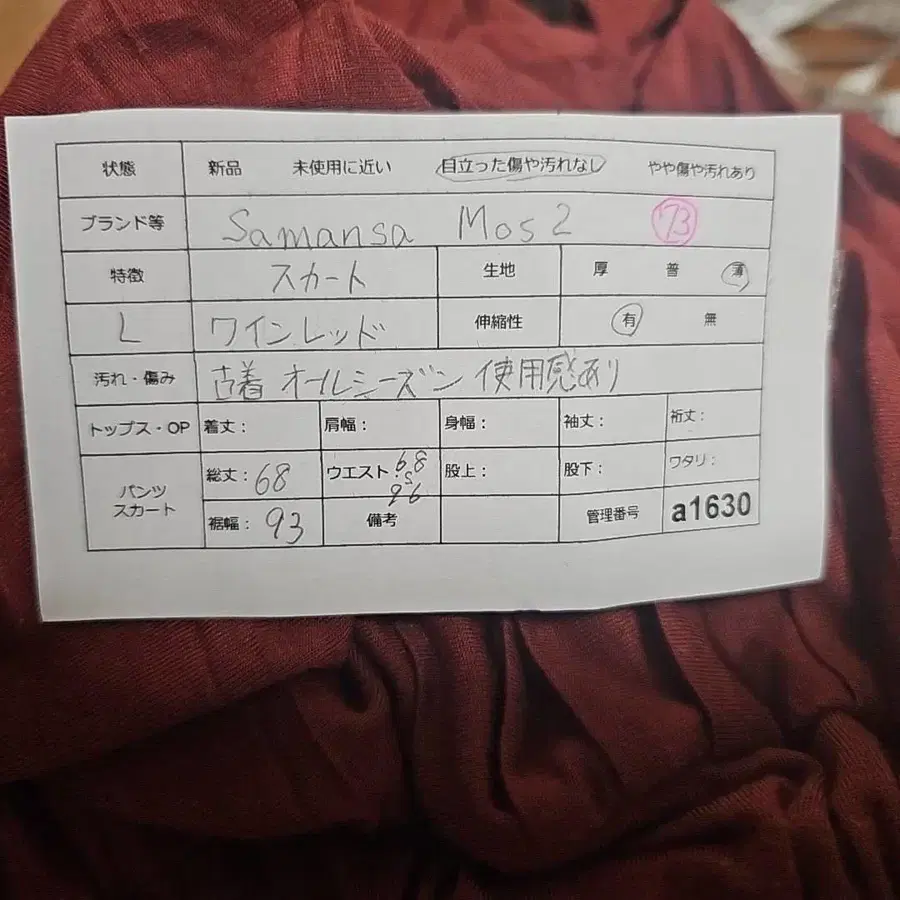 状態 新品 未使用に近い 目立った傷や汚れなし やや傷や汚れあり
ブランド等 Samansa Mos2 73
特徴 スカート 生地 厚 普 薄
L ワインレッド 伸縮性 有 無
汚れ・傷み 古着 オールシーズン 使用感あり
トップス・OP 着丈： 肩幅： 身幅： 袖丈： 裄丈：
パンツ スカート 総丈：68 ウエスト 68 96 股上： 股下： ワタリ：
裾幅：93 備考 管理番号 a1630